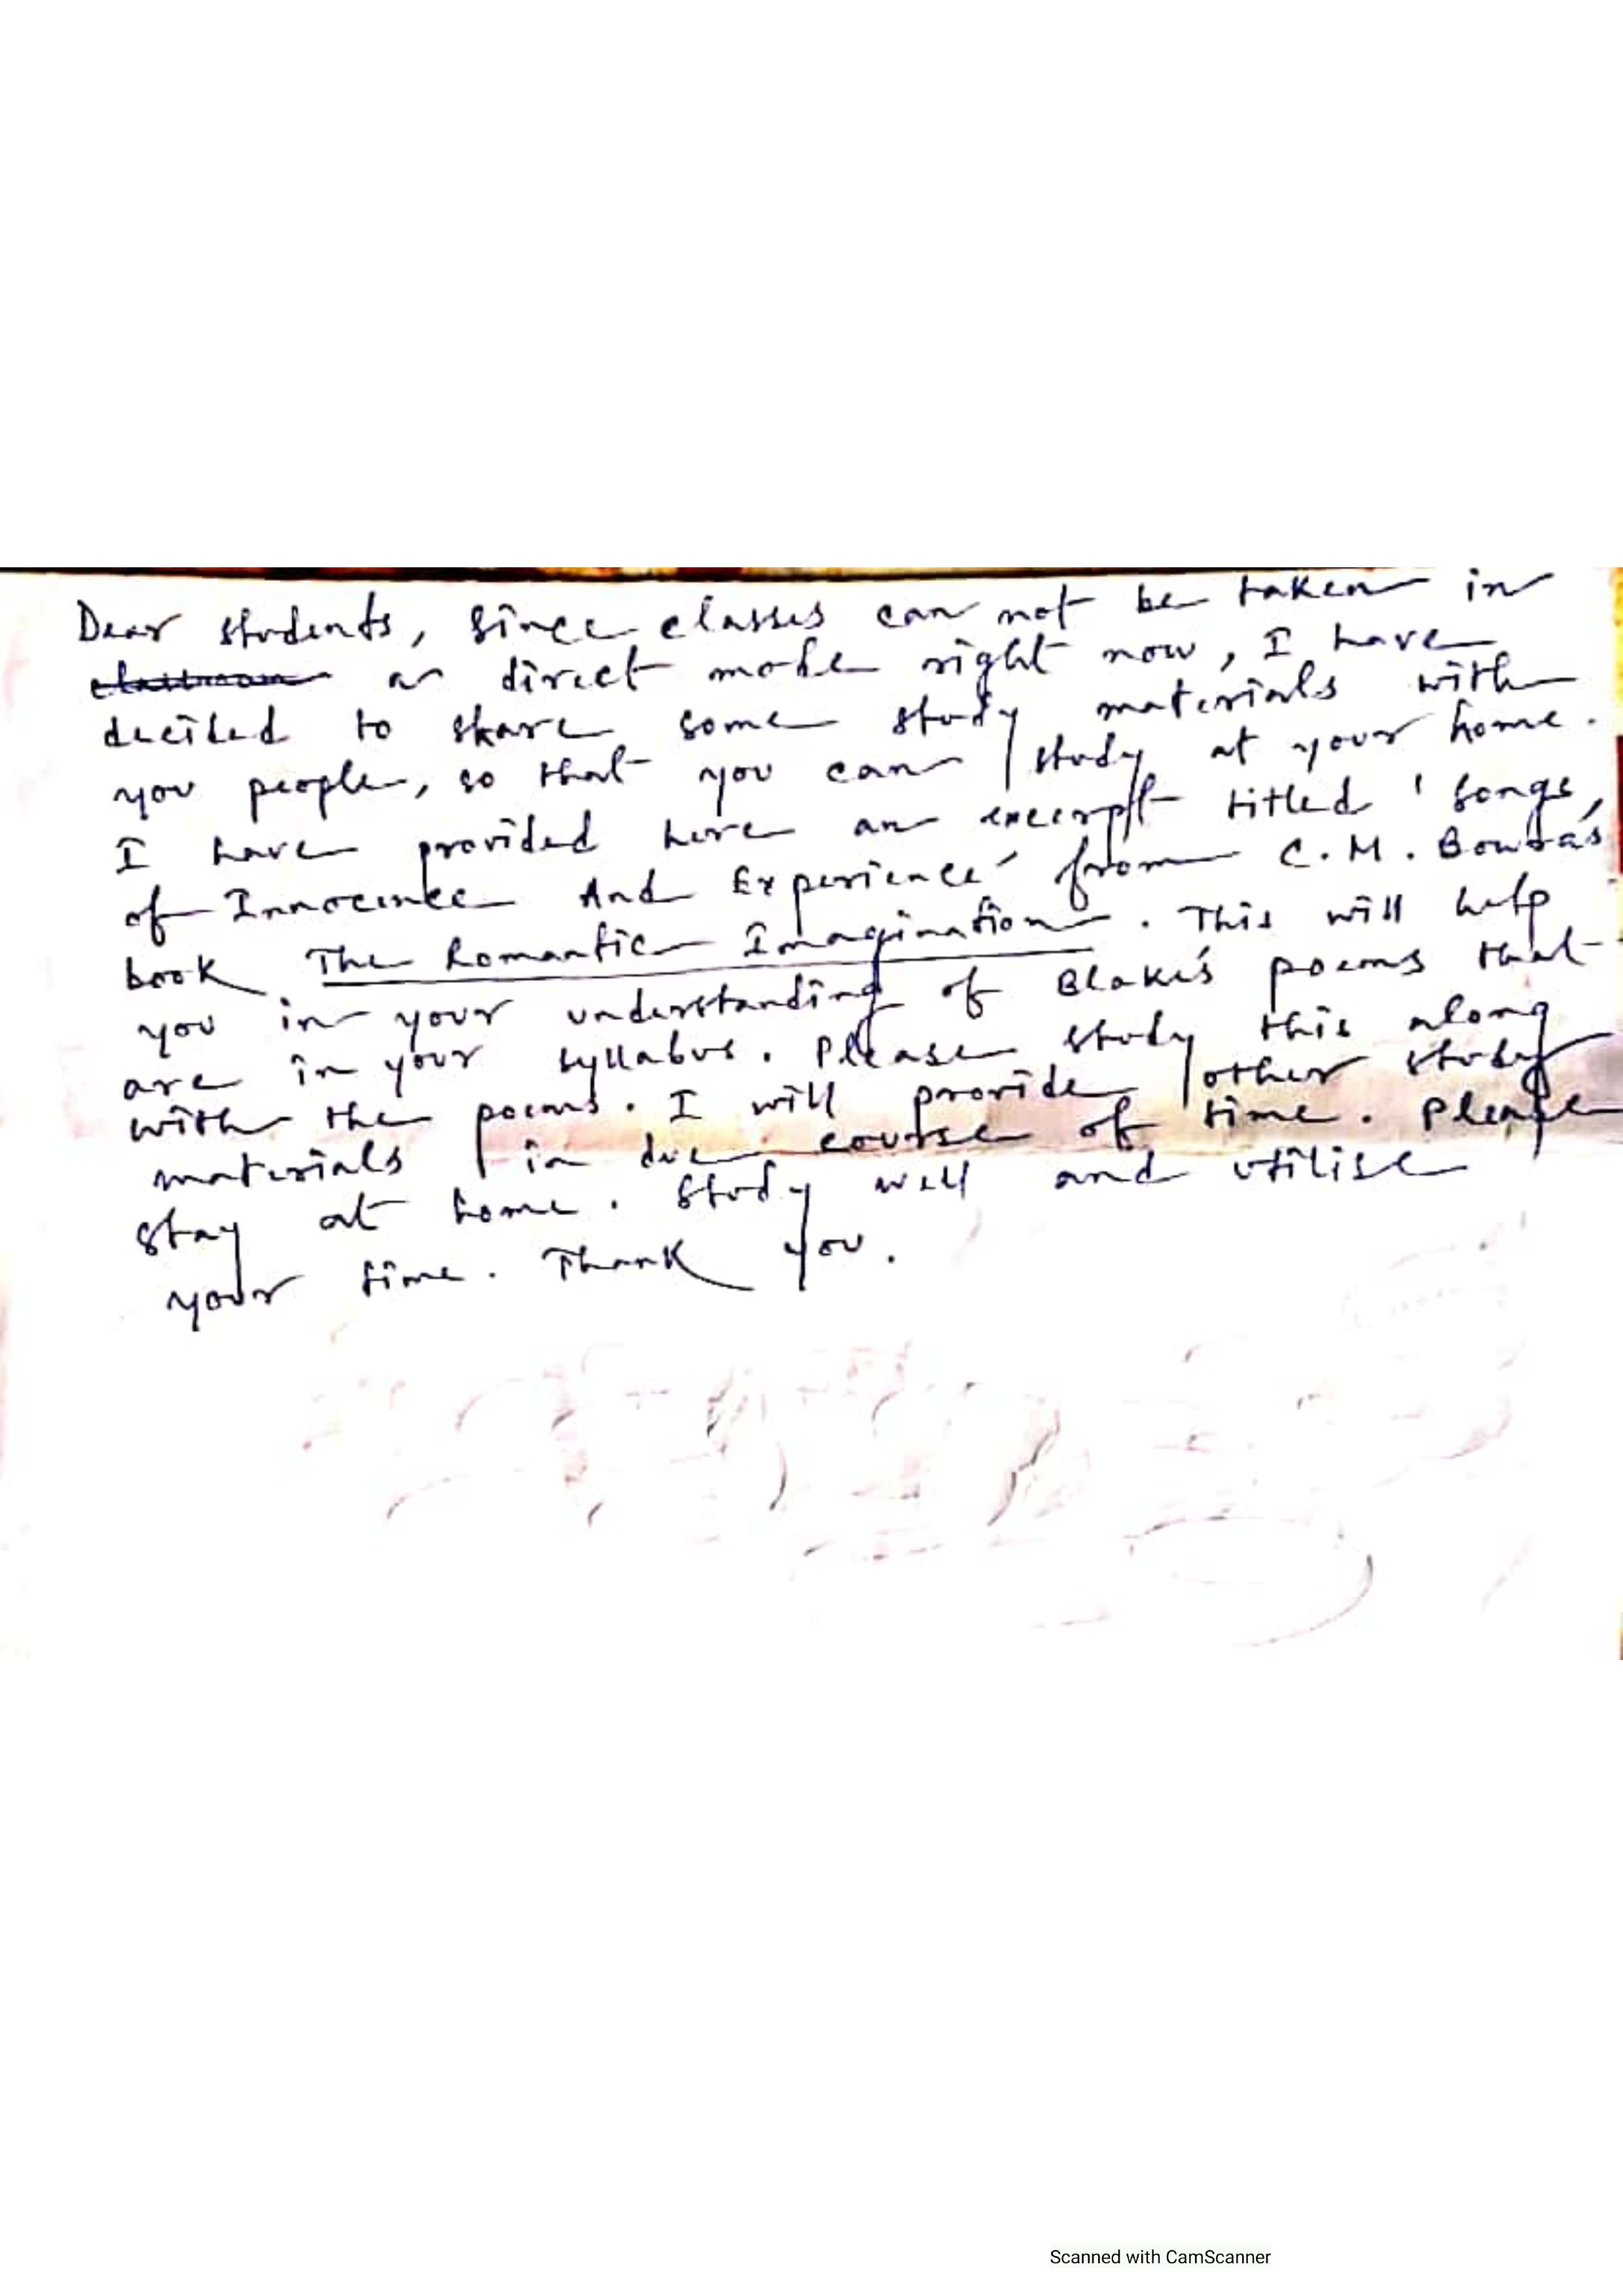 Dear students, Since classes can not be taken in
a direct mode right now, I have
decided to share some study materials with
you people, so that you can study at your home.
I have provided here an excerpt titled 'Songs
of Innocence And Experience' from C.M. Bowra's
book The Romantic Imagination. This will help
you in your understanding of Blake's poems that
are in your syllabus. Please study this along
with the poems. I will provide other study
materials in due course of time. Please
stay at home. Study well and utilise
your time. Thank you.
Scanned with CamScanner